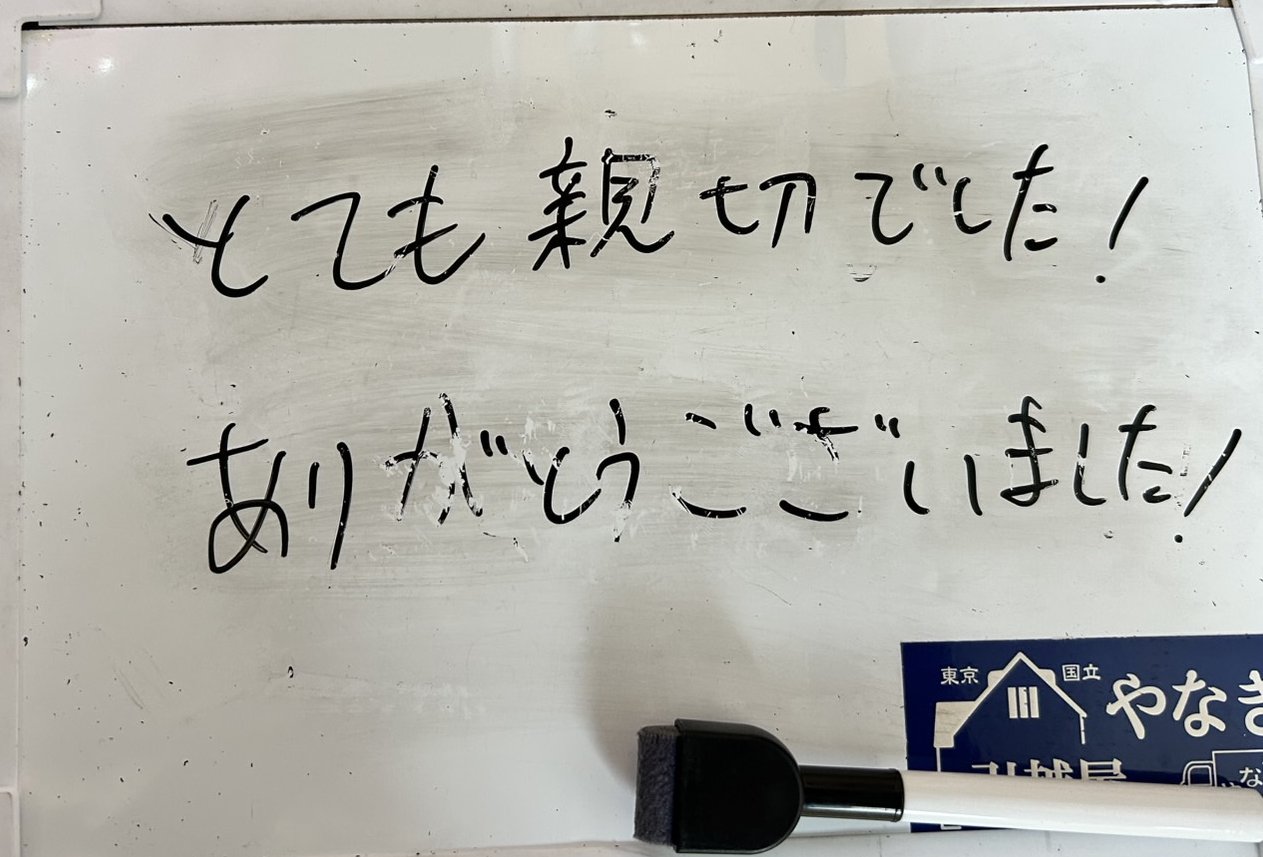 とても親切でした!
ありがとうございました!
東京 国立
やなぎ
引越屋
な